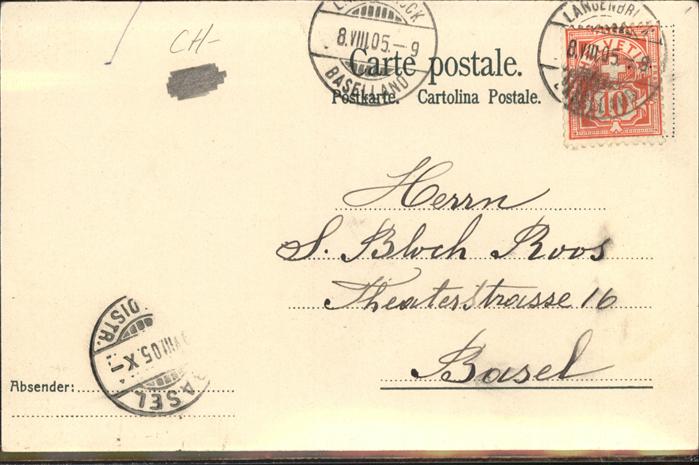 CH-
8.VIII.05.-9
BASELLAND
LANGENBR
8.VIII.05.-9
HELVETIA
10
Carte postale.
Postkarte. Cartolina Postale.
Herrn
S. Bloch Roos
Theaterstrasse 16
Basel
DISTR.
VIII.05.X-
BASEL
Absender: